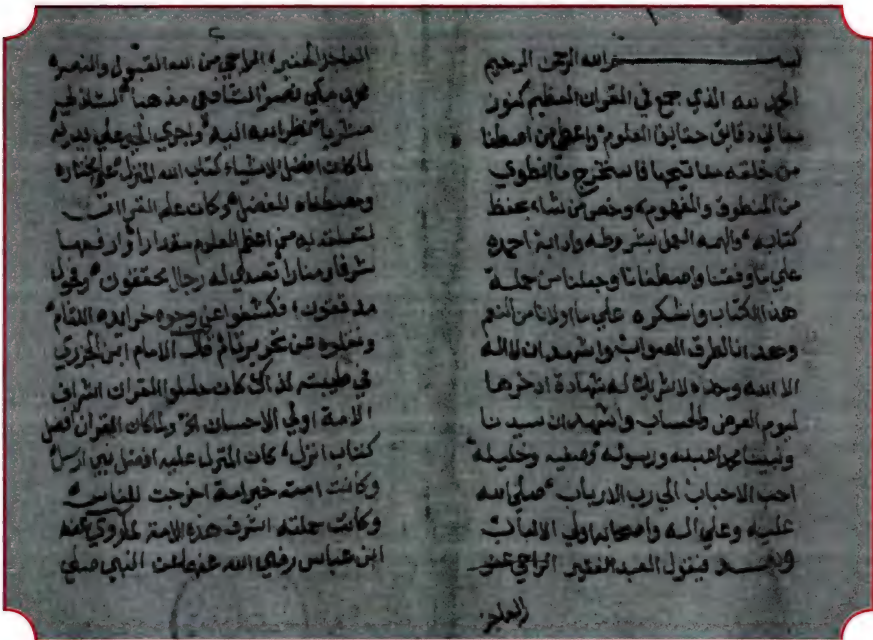 بسم الله الرحمن الرحيم
الحمد لله الذي جمع في القران العظيم كنوز
معاني دقايق حقايق العلوم واعطي من اصطفا
من خلقه مفاتيحها فاستخرج ما انطوي
من المنطوق والمفهوم وخص من شاء بحفظ
كتابه والهمه العمل بشروطه وادابه احمده
علي ما وفقنا واصطفانا وجعلنا من حملة
هذا الكتاب واشكره علي ما اولانا من النعم
وهدانا لطرق الصواب واشهد ان لا اله
الا الله وحده لا شريك له شهادة ادخرها
ليوم العرض والحساب واشهد ان سيدنا
ونبينا محمدا عبده ورسوله وصفيه وخليله
احب الاحباب الي رب الارباب صلي الله
عليه وعلي اله واصحابه اولي الالباب
وبعد فيقول العبد الفقير الراجي عفو
العاجز
العاجز الراجي من الله القبول والنصر
محمد مكي نصر الشافعي مذهبا الشاذلي
نظر الله اليه واجري الخير علي يديه
لما كان افضل الاشياء كتاب الله المنزل علي مختاره
ومصطفاه المفضل وكان علم القراات
لتعلقه به من اعظم العلوم مقدارا وارفعها
شرفا ومنارا تصدي له رجال محققون وفحول
مدققون فكشفوا عن وجوه خرايده اللثام
ونقلوه عن تحرير تام قال الامام ابن الجزري
في طيبته لذاك كان حاملو القران اشراف
الامة اولي الاحسان الخ ولما كان القران افضل
كتاب انزل كان المنزل عليه افضل نبي ارسل
وكانت امته خير امة اخرجت للناس
وكانت حملته اشرف هذه الامة لما روي عن
ابن عباس رضي الله عنهما عن النبي صلي